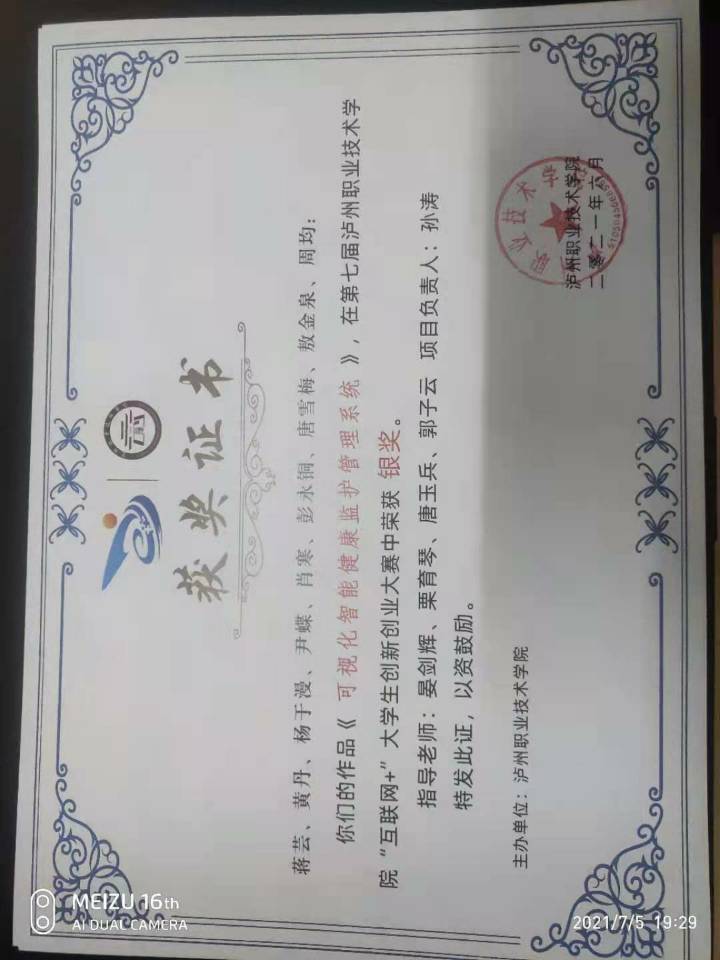 获奖证书
蒋芸、黄丹、杨于漫、尹蝶、肖寒、彭永铜、唐雪梅、敖金泉、周均：
你们的作品《 可视化智能健康监护管理系统 》，在第七届泸州职业技术学
院“互联网+”大学生创新创业大赛中荣获 银奖。
指导老师：晏剑辉、栗育琴、唐玉兵、郭子云 项目负责人：孙涛
特发此证，以资鼓励。
主办单位：泸州职业技术学院
泸州职业技术学院
二零二一年六月
MEIZU 16th
AI DUAL CAMERA
2021/7/5 19:29